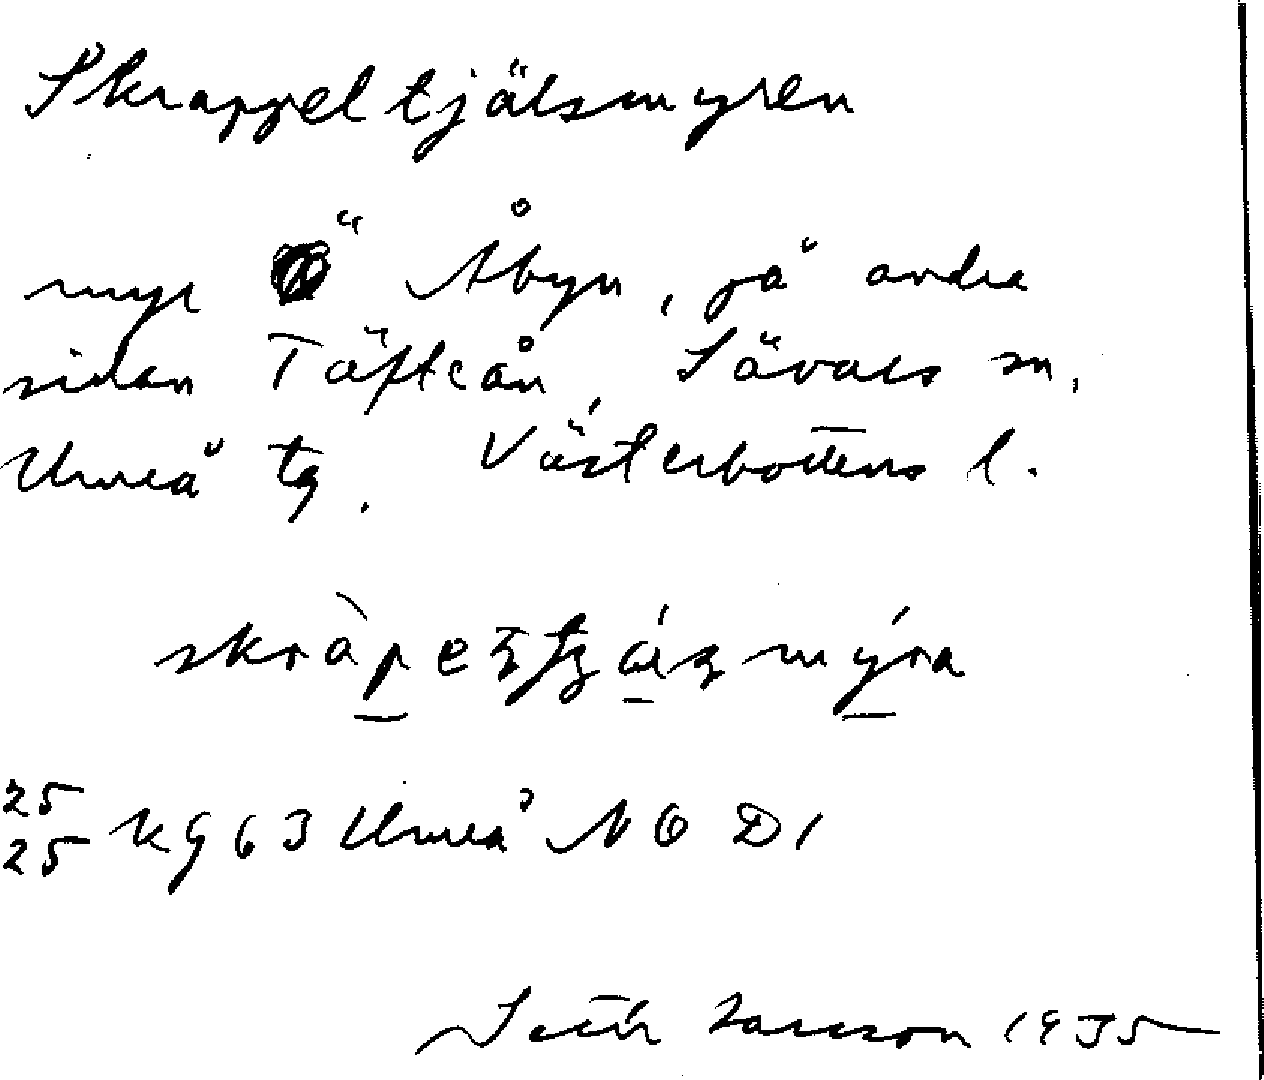 Skrappeltjälsmyren
myr Ö Åbyn, på andra
sidan Täfteån, Sävars sn,
Umeå tg. Västerbottens l.
25 25 kg 63 Umeå NO D1
Seth Larsson 1935